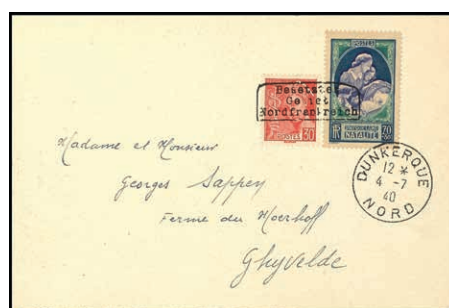 Besetztes
Gebiet
Nordfrankreich
POSTES
30
NATALITÉ
DUNKERQUE
12 *
4 -7
40
NORD
Madame et Monsieur
Georges Sappey
Ferme du Moerhoff
Ghyvelde